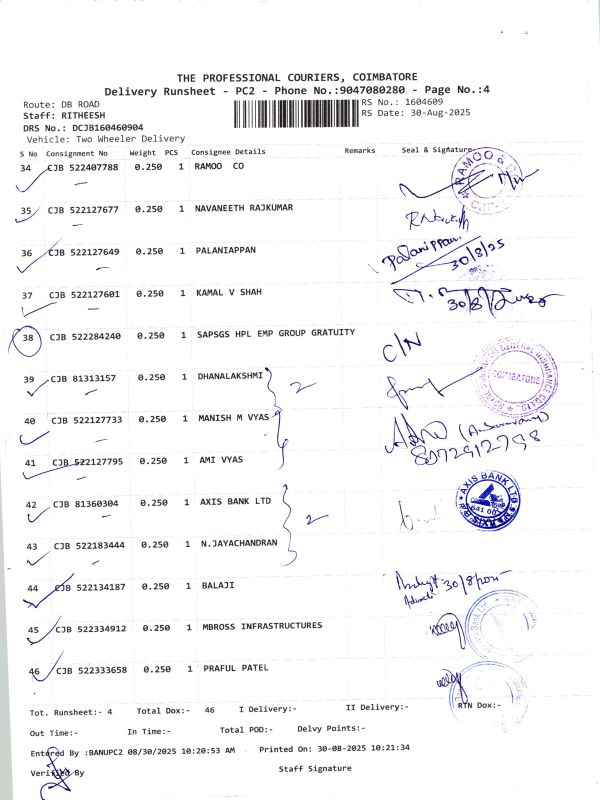 THE PROFESSIONAL COURIERS, COIMBATORE
Delivery Runsheet - PC2 - Phone No.:9047080280 - Page No.:4
Route: DB ROAD RS No.: 1604609
Staff: RITHEESH RS Date: 30-Aug-2025
DRS No.: DCJB160460904
Vehicle: Two Wheeler Delivery
S No Consignment No Weight PCS Consignee Details Remarks Seal & Signature
34 CJB 522407788 0.250 1 RAMOO CO RAMOO &
35 CJB 522127677 0.250 1 NAVANEETH RAJKUMAR
36 CJB 522127649 0.250 1 PALANIAPPAN Palaniappan 30/8/25
37 CJB 522127601 0.250 1 KAMAL V SHAH 30/8/
38 CJB 522284240 0.250 1 SAPSGS HPL EMP GROUP GRATUITY C/N
39 CJB 81313157 0.250 1 DHANALAKSHMI 2 GENERAL INSURANCE CO LTD COIMBATORE
40 CJB 522127733 0.250 1 MANISH M VYAS
41 CJB 522127795 0.250 1 AMI VYAS 8072912798
42 CJB 81360304 0.250 1 AXIS BANK LTD 2 AXIS BANK LTD 641 00
43 CJB 522183444 0.250 1 N.JAYACHANDRAN
44 CJB 522134187 0.250 1 BALAJI 30/8/
45 CJB 522334912 0.250 1 MBROSS INFRASTRUCTURES
46 CJB 522333658 0.250 1 PRAFUL PATEL
Tot. Runsheet:- 4 Total Dox:- 46 I Delivery:- II Delivery:- RTN Dox:-
Out Time:- In Time:- Total POD:- Delvy Points:-
Entered By :BANUPC2 08/30/2025 10:20:53 AM Printed On: 30-08-2025 10:21:34
Verified By Staff Signature